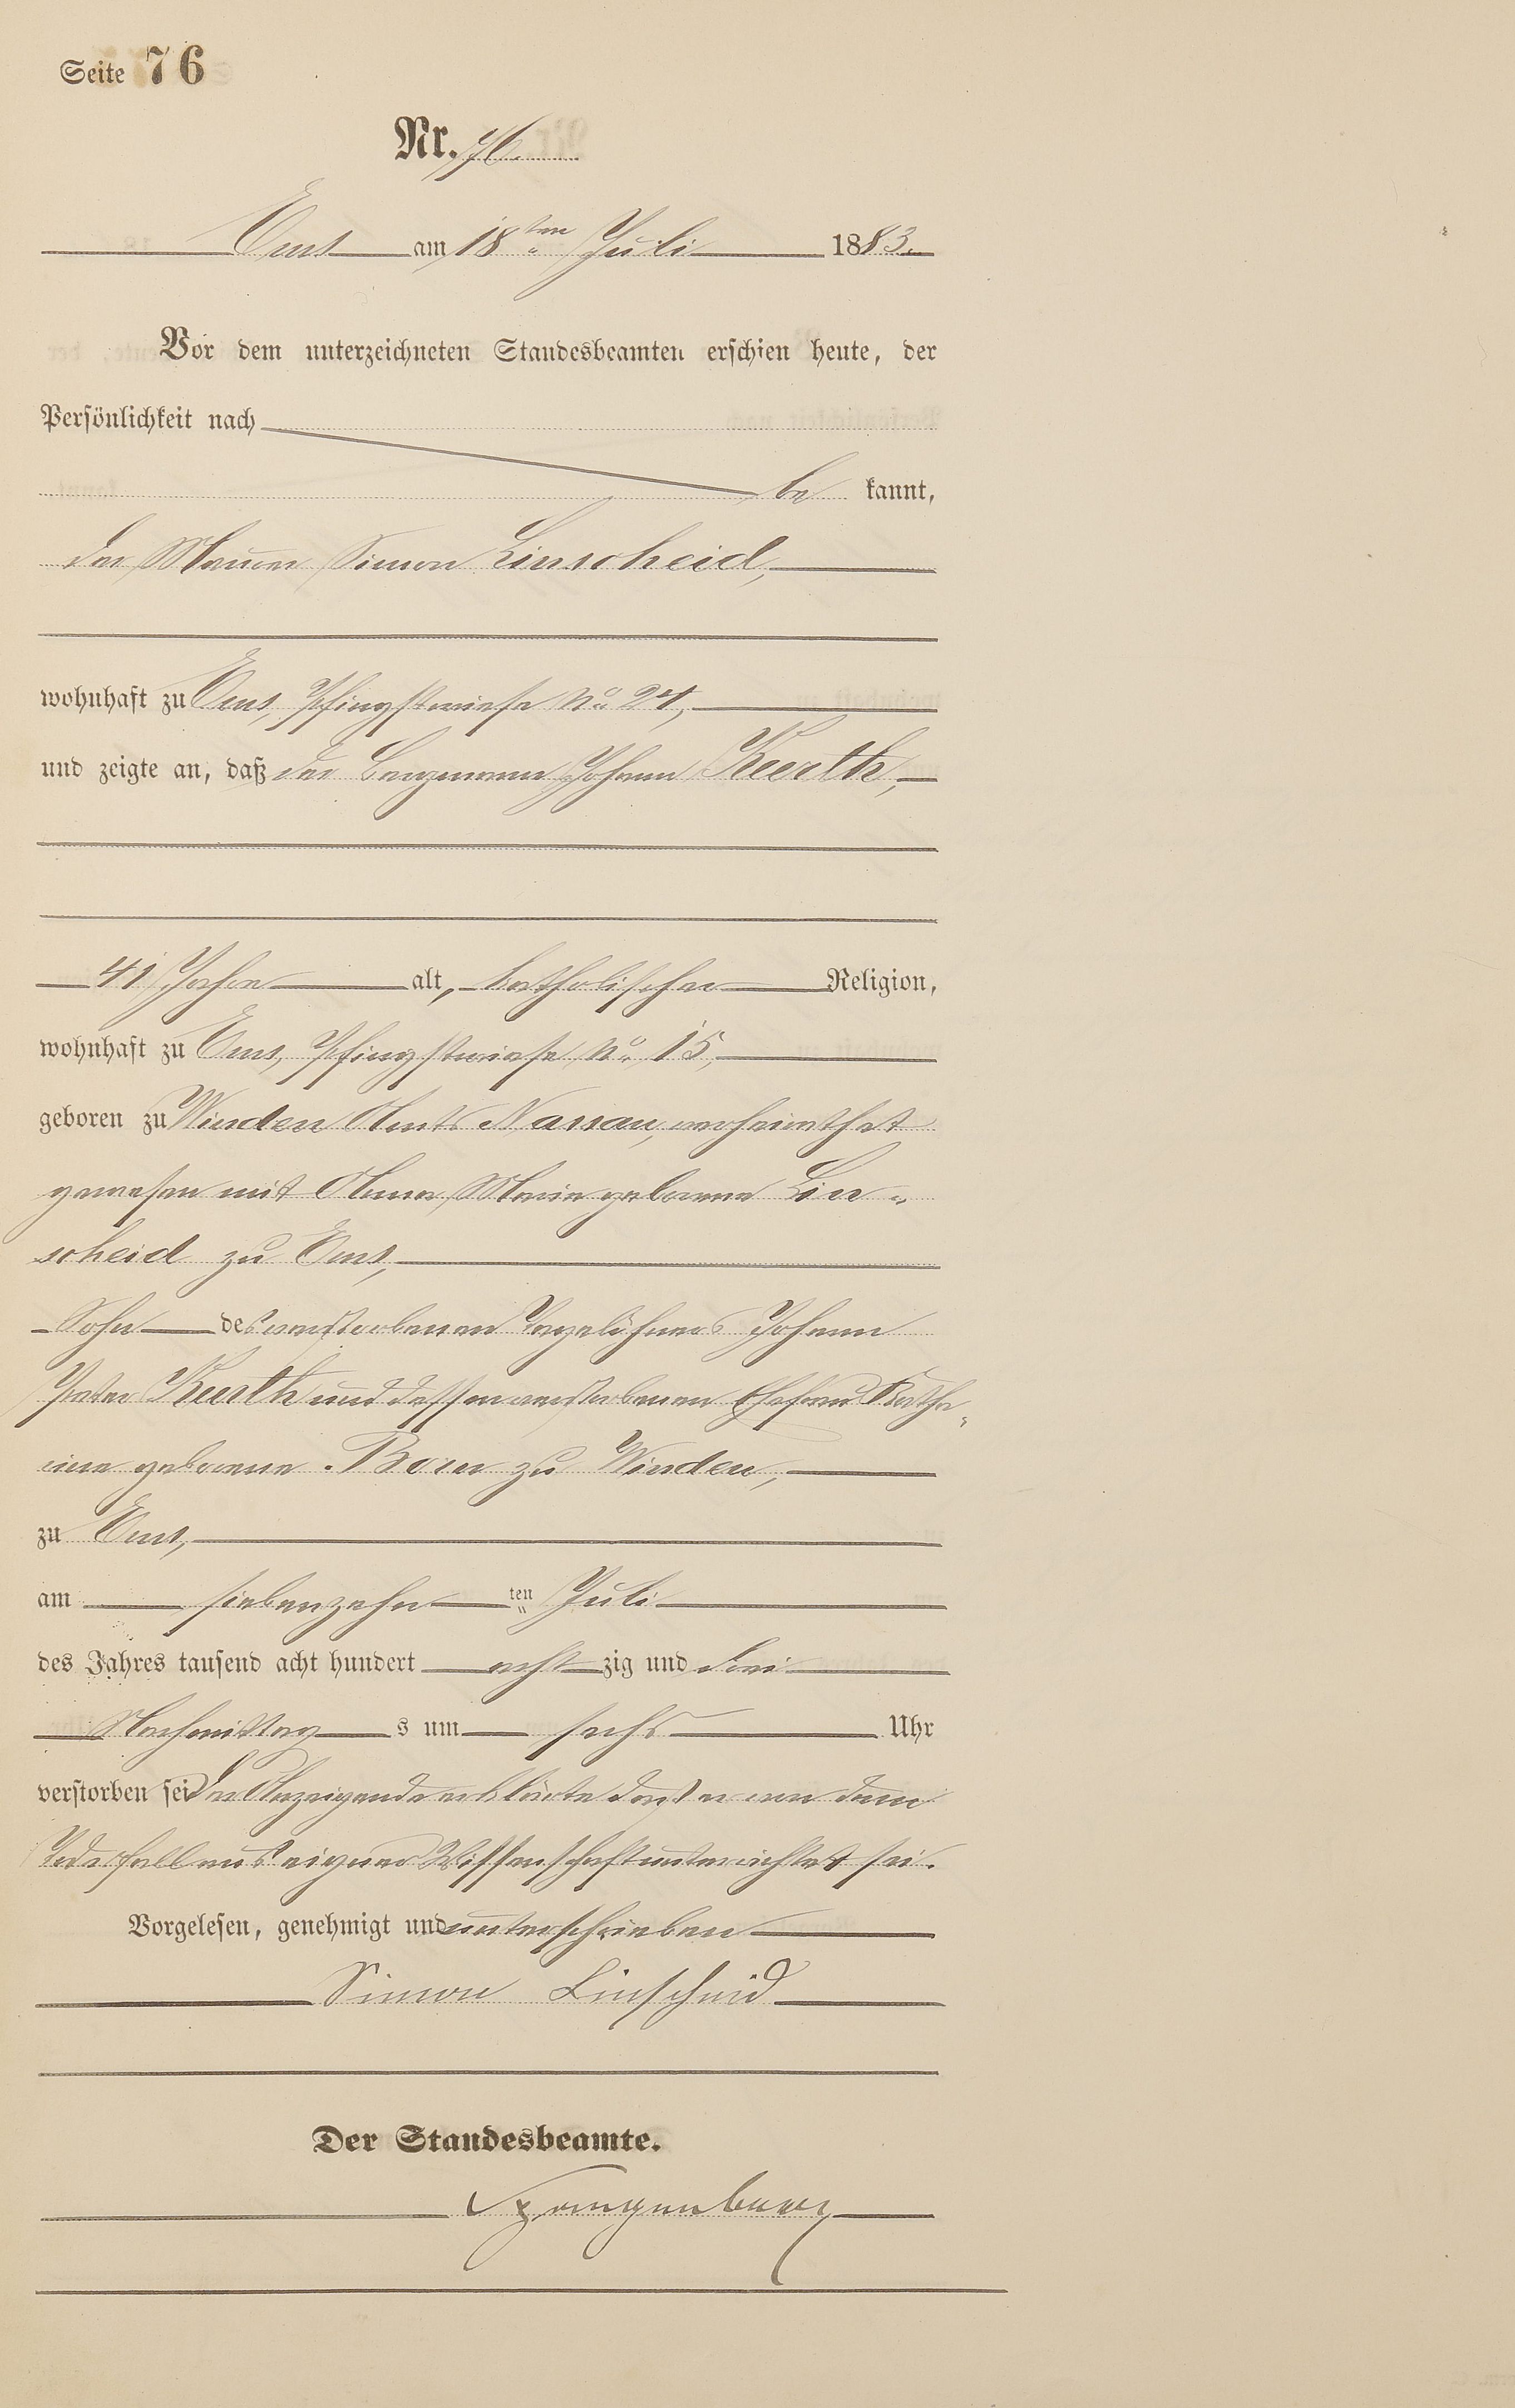 Seite 76
Nr. 76.
Ems am 18ten Juli 1883.
Vor dem unterzeichneten Standesbeamten erschien heute, der
Persönlichkeit nach
be kannt,
der Maurer Simon Linscheid,
wohnhaft zu Ems, Pfingstwiese No 24,
und zeigte an, daß der Bergmann Johann Kurth,
41 Jahre alt, katholischer Religion,
wohnhaft zu Ems, Pfingstwiese No. 15,
geboren zu Winden Amts Nassau, verheirathet
gewesen mit Anna Maria geborene Lin-
scheid zu Ems,
Sohn des verstorbenen Tagelöhners Johann
Peter Kurth und dessen verstorbenen Ehefrau Katha-
rina geborene Born zu Winden,
zu Ems,
am siebenzehn ten Juli
des Jahres tausend acht hundert acht zig und drei
Nachmittag s um sechs Uhr
verstorben sei. Der Anzeigende erklärte daß er von dem
Todesfall aus eigner Wissenschaft unterrichtet sei.
Vorgelesen, genehmigt und unterschrieben
Simon Linscheid
Der Standesbeamte.
Spangenberg